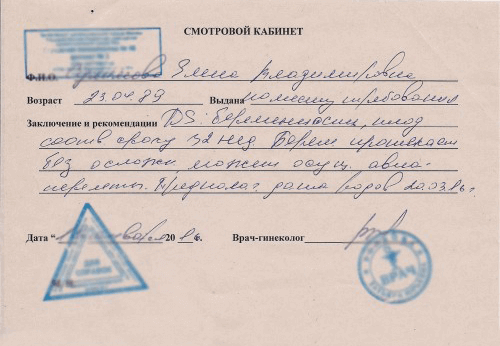 СМОТРОВОЙ КАБИНЕТ
Ф.И.О. Елена Владимировна
Возраст 23.04.89 Выдана по месту требования
Заключение и рекомендации DS: беременность, плод
соотв сроку 32 нед. Берем протекает
без осложн можно осущ. авиа-
перелеты. Предполаг. дата родов 20.03.
Дата “ января 20 г.
Врач-гинеколог
ВРАЧ
ДЛЯ СПРАВОК